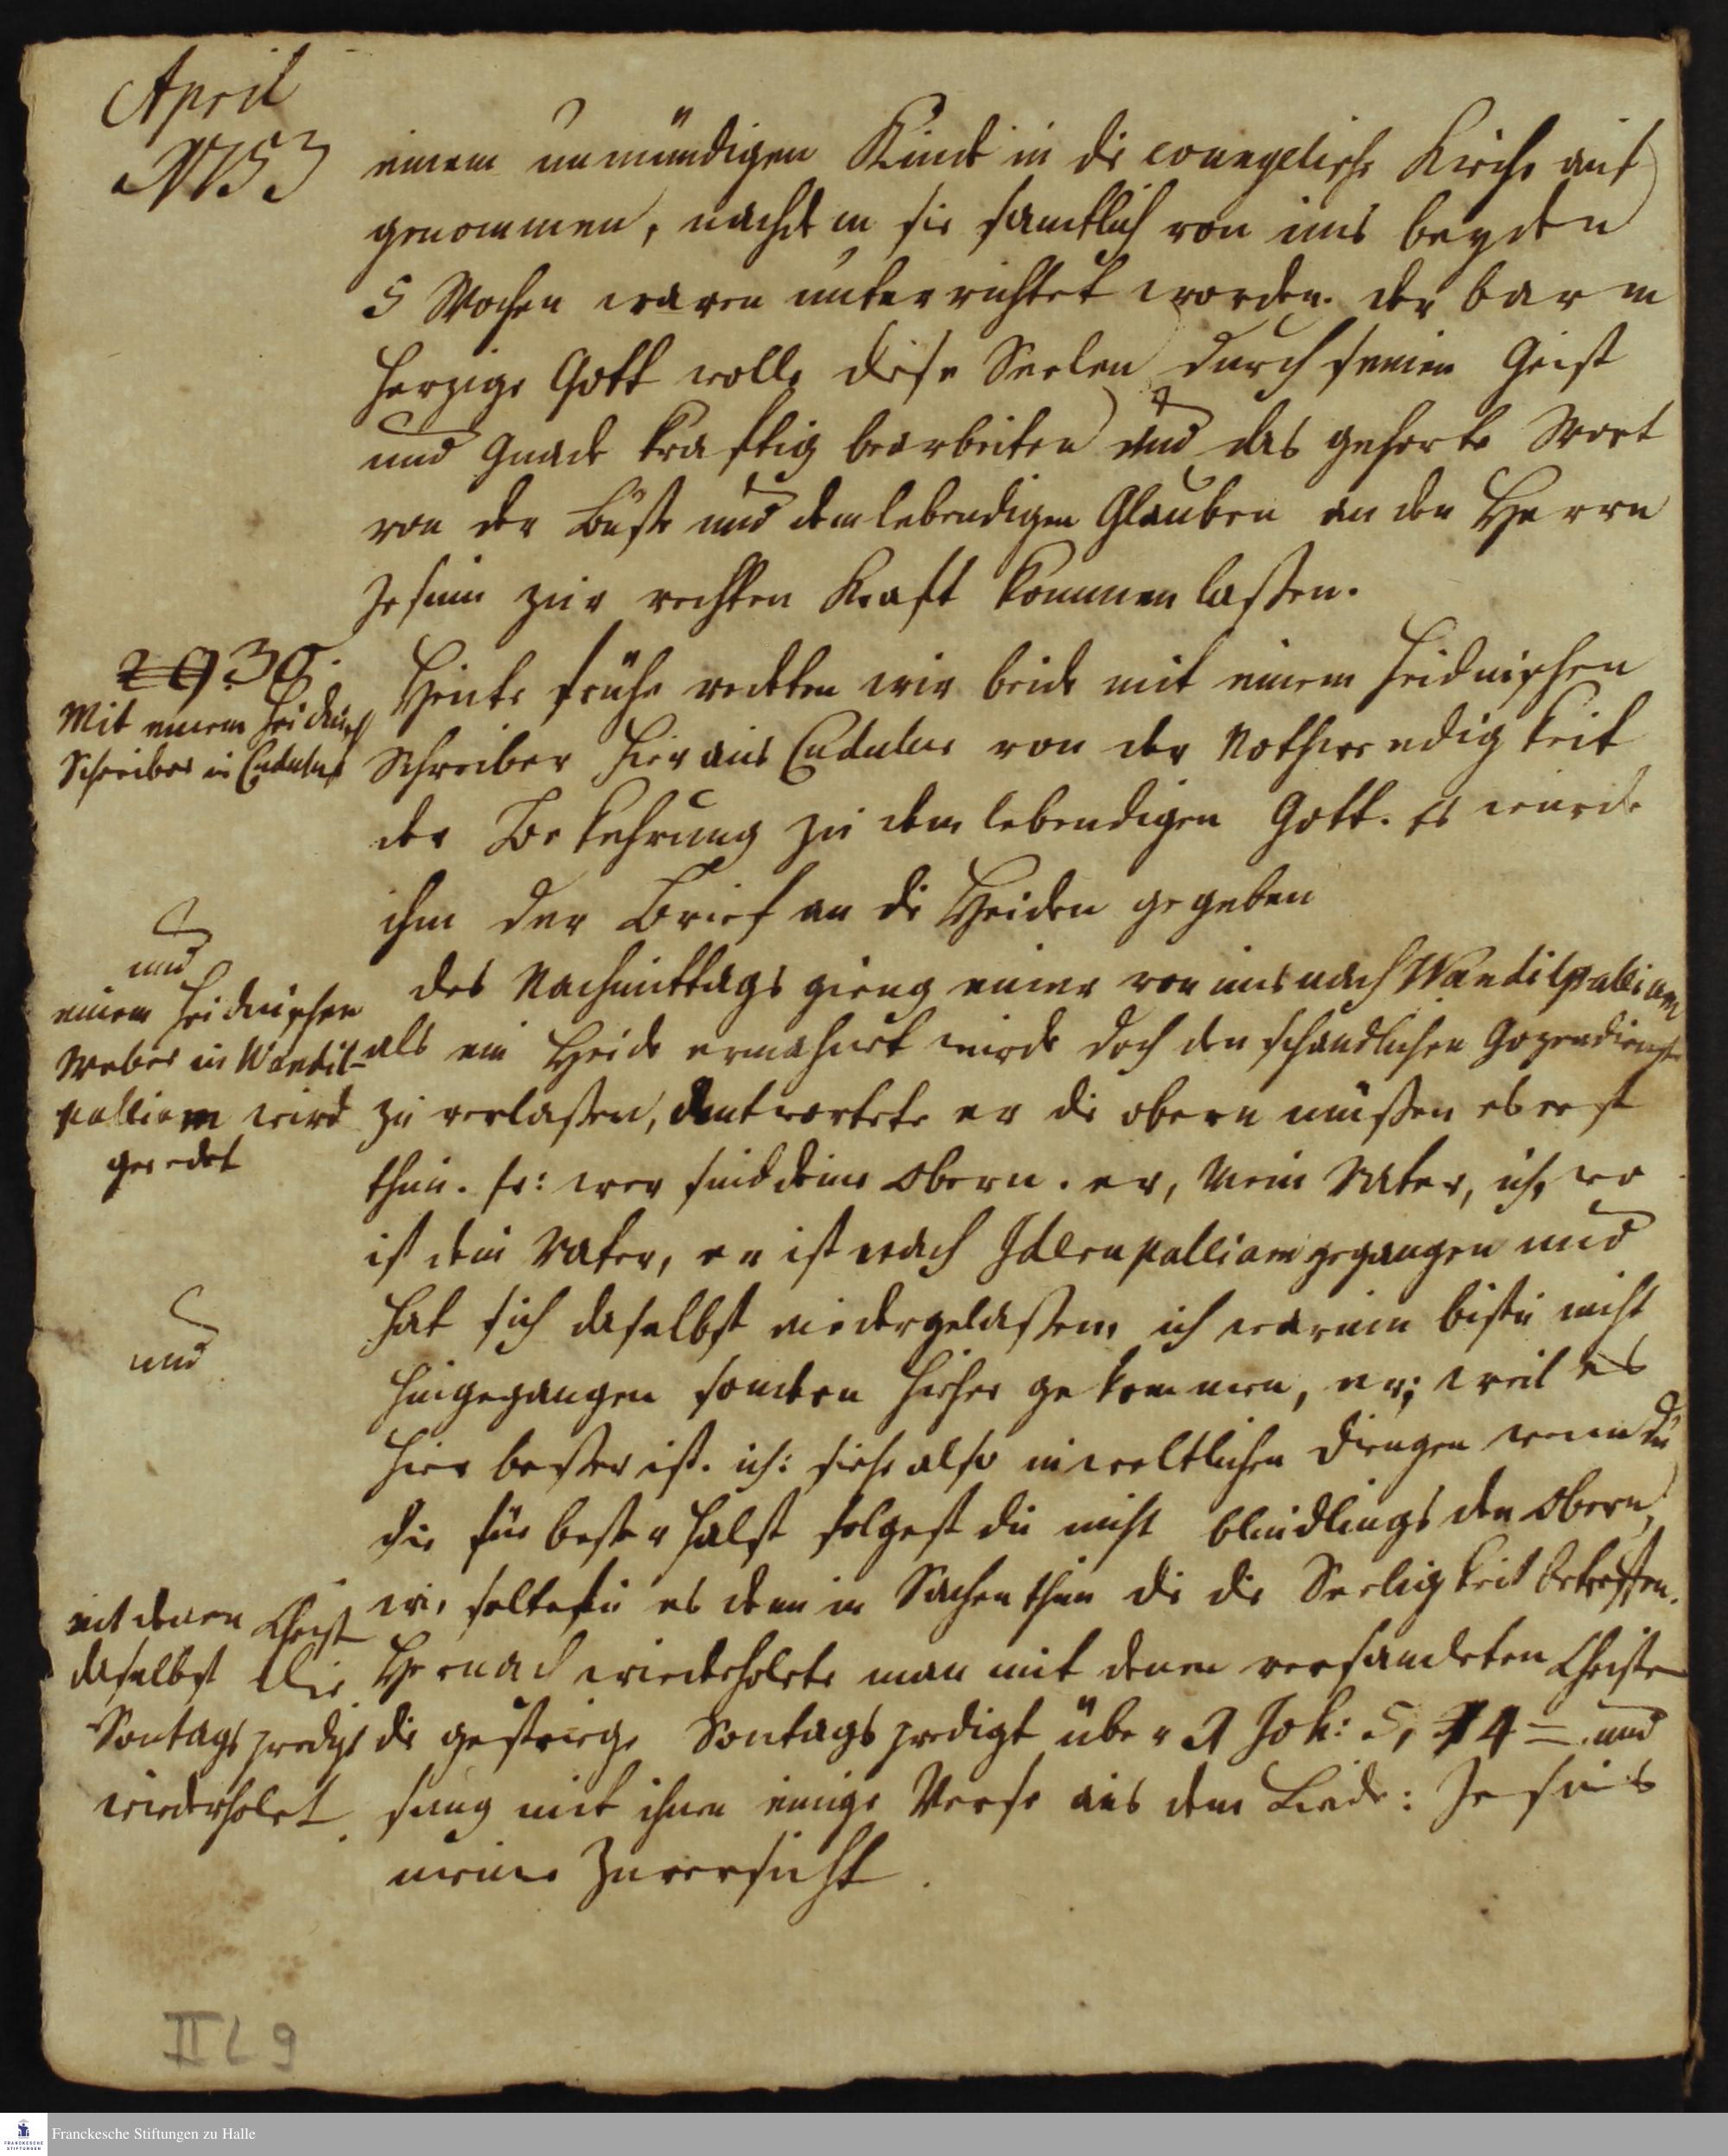 April
1753
einem unmündigen Kinde in die evangelische Kirche auf
genommen, nachdem sie samtlich von uns beyden
5 Wochen waren unterrichtet worden. der barm
herzige Gott wolle diese Seelen durch seinen Geist
und Gnade kraftig bearbeiten und das gehorte Wort
von der Buße und dem lebendigen Glauben an den Herrn
Jesum zur rechten Kraft kommen laßen.
29 30.
Mit einem heidnisch
Schreiber in Cudulur
Heute frühe redeten wir beide mit einem heidnischen
Schreiber hier aus Cudulur von der Nothwendigkeit
der Bekehrung zu dem lebendigen Gott. Es wurde
ihm der Brief an die Heiden gegeben
und
einem heidnischen
Weber in Wandil-
palliam wird
geredet
des Nachmittags gieng einer von uns nach Wandilpalliam
als ein Heide ermahnet wurde doch den schandlichen Gozendienst
zu verlaßen, antwortete er die obern mußen es erst
thun. fr: wer sind deine Obern. er, Mein Vater, ich, wo
ist dein Vater, er ist nach Idlenpalliam gegangen und
hat sich daselbst niedergelaßen, ich warum bistu nicht
hingegangen sondern hieher gekommen, er; weil es
hier beßer ist. ich: siehe also in weltlichen Dingen wenn du
die für beßer halst folgest du nicht blindlings den Obern,
wie soltestu es denn in Sachen thun die die Seeligkeit betreffen.
und
mit denen Christ
daselbst die
Sontagspredigt
wiederholet.
Hernach wiederholete man mit denen versamleten Christen
die gestrige Sontagspredigt über 1 Joh: 5, 4 = und
sung mit ihnen einige Verse aus dem Liede: Jesus
meine Zuversicht.
II L 9
Franckesche Stiftungen zu Halle